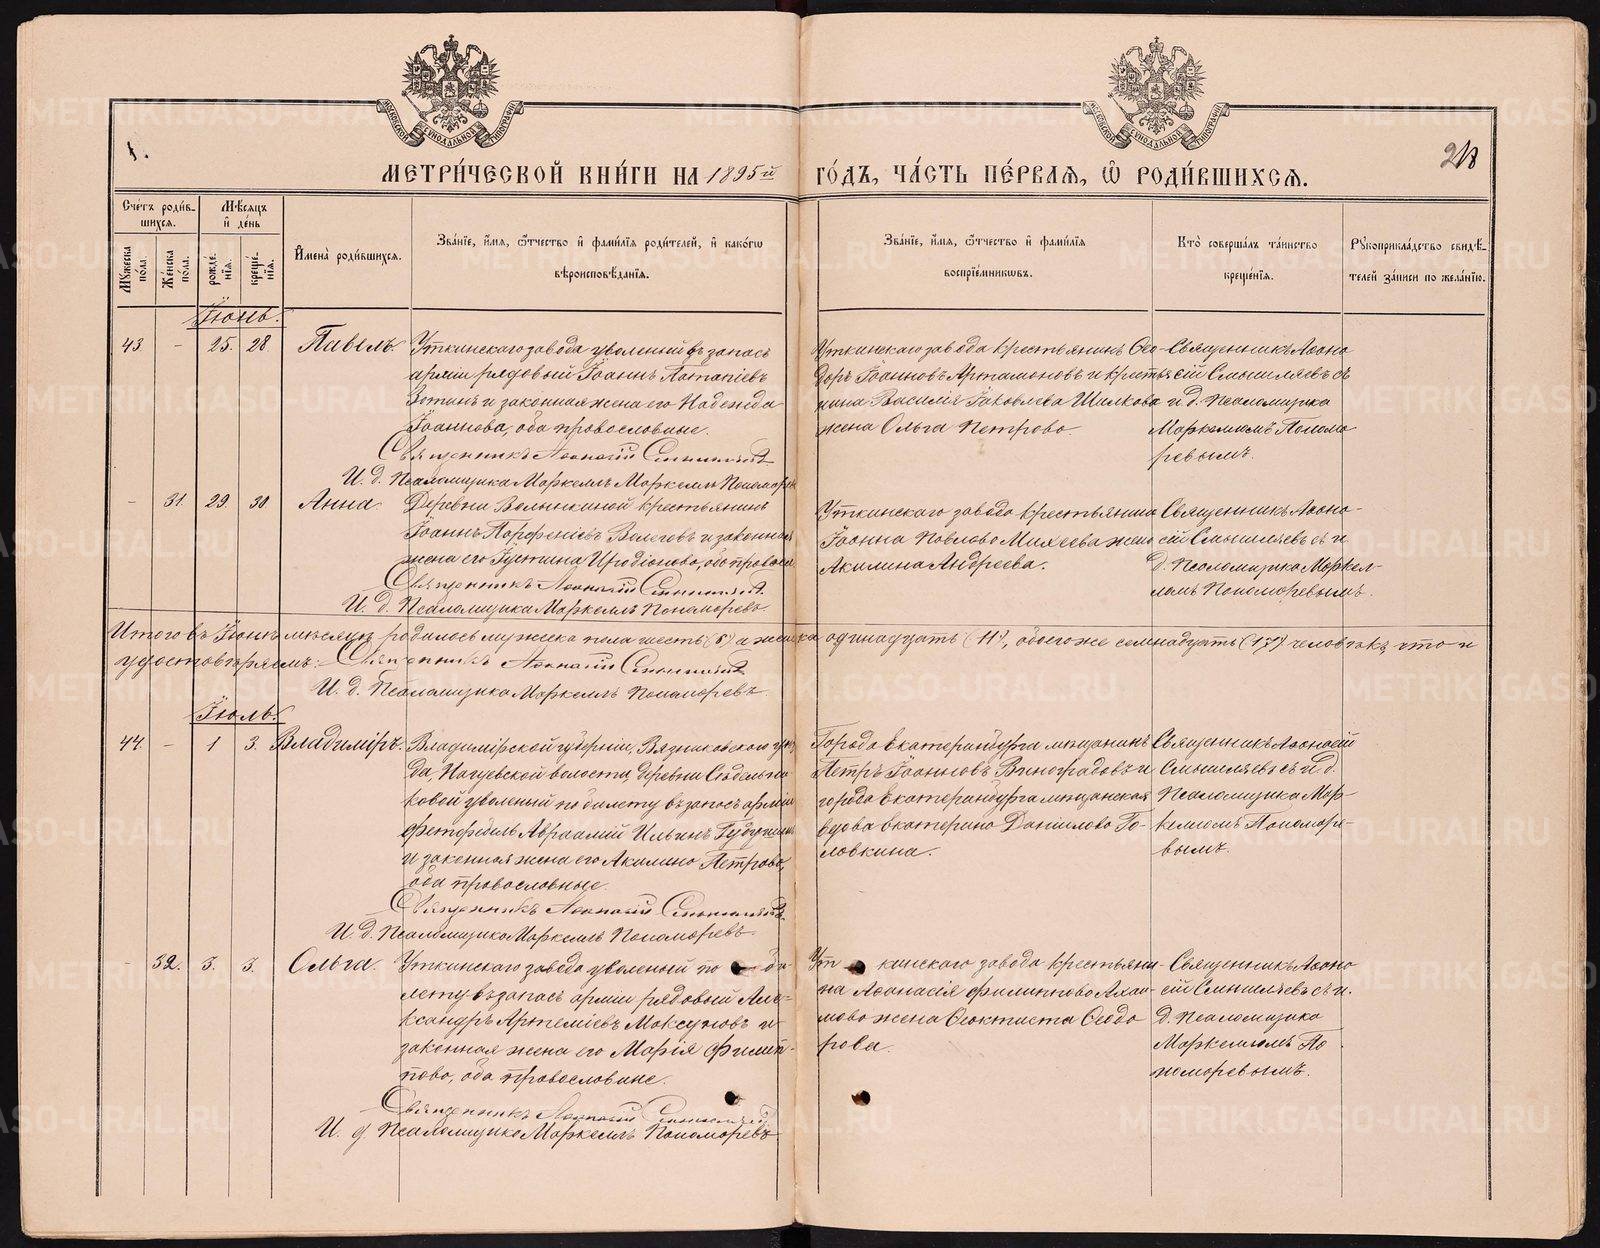 МЕТРИ́ЧЕСКОЙ КНИ́ГИ НА 1895й ГО́ДЪ, ЧА́СТЬ ПЕ́РВАЯ, Ѽ РОДИ́ВШИХСЯ.
Сче́тъ роди́в-
шихся.
Мужеска по́ла.
Же́нска по́ла.
Мѣ́сяцъ
и҆ де́нь
рожде́нїя.
креще́нїя.
И҆мена̀ роди́вшихся.
Зва́нїе, и҆́мя, ѻ҆́тчество и҆ фами́лїя роди́телей, и҆ како́гѡ
вѣроисповѣ́данїя.
Зва́нїе, и҆́мя, ѻ҆́тчество и҆ фами́лїя
воспрїе́мниковъ.
Кто̀ соверша́лъ та́инство
креще́нїя.
Рукоприкла́дство свидѣ́-
телей за́писи по жела́нїю.
Іюнь.
43. - 25. 28. Павелъ.
Уткинскаго завода уволеный въ запасъ
арміи рядовый Іоаннъ Потапіевъ
Зотинъ и законная жена его Надежда
Іоаннова, оба православные.
Священникъ Аѳанасій Смышляевъ
И. д. Псаломщика Маркеллъ Маркеллъ Пономаревъ
Уткинскаго завода крестьянинъ Ѳео-
доръ Іоанновъ Артамоновъ и крестья
нина Василія Іаковлева Шилкова
жена Ольга Петрова.
Священникъ Аѳана
сій Смышляевъ съ
и д. Псаломщика
Маркелломъ Понома
ревымъ.
- 31. 29. 30. Анна.
Деревни Волынкиной крестьянинъ
Іоаннъ Парфеніевъ Волеговъ и законная
жена его Іустина Иродіонова, оба правосл
Священникъ Аѳанасій Смышляевъ
И. д. Псаломщика Маркеллъ Пономаревъ
Уткинскаго завода крестьянина
Іоанна Павлова Михеева жена
Акилина Андреева.
Священникъ Аѳана-
сій Смышляевъ съ и
д. Псаломщика Маркел-
ломъ Пономаревымъ.
Итого въ Іюнѣ мѣсяцѣ родилось мужска пола шесть (6) а женска одинадцать (11), обоего же семнадцать (17) человѣкъ, что и
удостовѣряемъ: Священникъ Аѳанасій Смышляевъ
И. д. Псаломщика Маркеллъ Пономаревъ.
Іюль.
44. - 1 3. Владиміръ.
Владимірской губерніи, Вязниковскаго уѣз
да, волости, деревни
ковой уволеный по билету въ запасъ арміи
фельдфебель Авраамій Ильинъ
и законная жена его Акилина Петрова,
оба православные.
Священникъ Аѳанасій Смышляевъ
И. д. Псаломщика Маркеллъ Пономаревъ.
Города Екатеринбурга мѣщанинъ
Петръ Іоанновъ Виноградовъ и
города Екатеринбурга мѣщанская
вдова Екатерина Даніилова Го-
ловкина.
Священникъ Аѳанасій
Смышляевъ съ и д.
Псаломщика Мар-
келломъ Пономаре-
вымъ.
- 32. 3. 3. Ольга.
Уткинскаго завода уволеный по би
лету въ запасъ арміи рядовый Але-
ксандръ Артеміевъ Максуновъ и
законная жена его Марія Филип-
пова, оба православные.
Священникъ Аѳанасій Смышляевъ
И. д Псаломщика Маркеллъ Пономаревъ
Уткинскаго завода крестьяни-
на Аѳанасія Филиппова
жена Ѳеоктиста Ѳеодо
рова.
Священникъ Аѳана
сій Смышляевъ съ и.
д. Псаломщика
Маркелломъ По
номаревымъ.